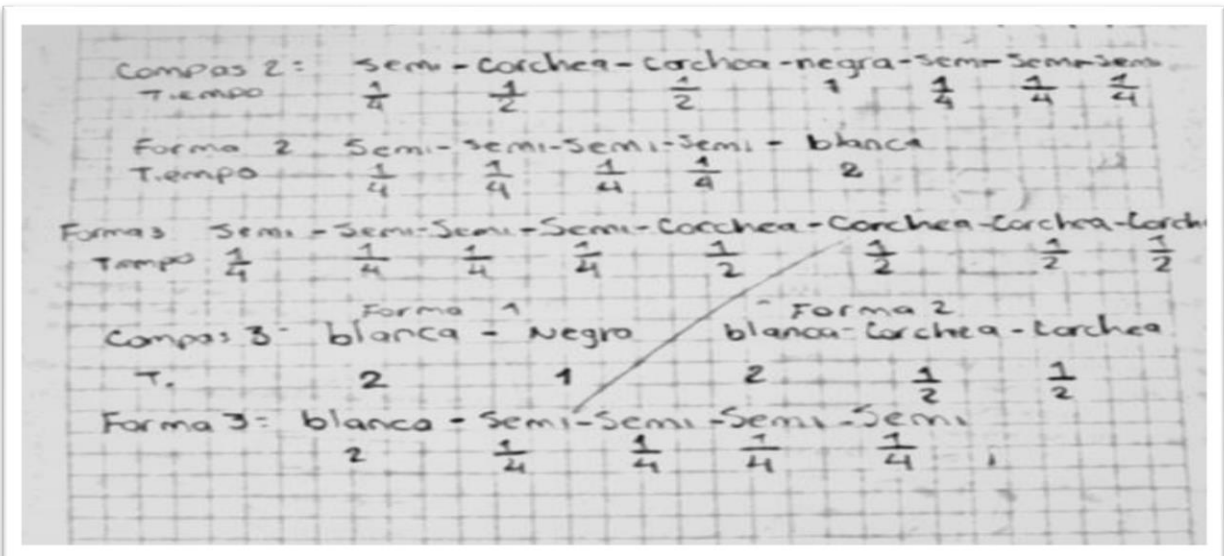 Compas 2: Semi - Corchea - corchea - negra - Semi - Semi - Semi
Tiempo 1/4 1/2 1/2 1 1/4 1/4 1/4
Forma 2 Semi - Semi - Semi - Semi - blanca
Tiempo 1/4 1/4 1/4 1/4 2
Forma 3 Semi - Semi - Semi - Semi - Corchea - Corchea - Corchea - Corch
Tiempo 1/4 1/4 1/4 1/4 1/2 1/2 1/2 1/2
Forma 1 Forma 2
Compas 3 - blanca - Negro blanca - Corchea - Corchea
T. 2 1 2 1/2 1/2
Forma 3 = blanca - Semi - Semi - Semi - Semi
2 1/4 1/4 1/4 1/4